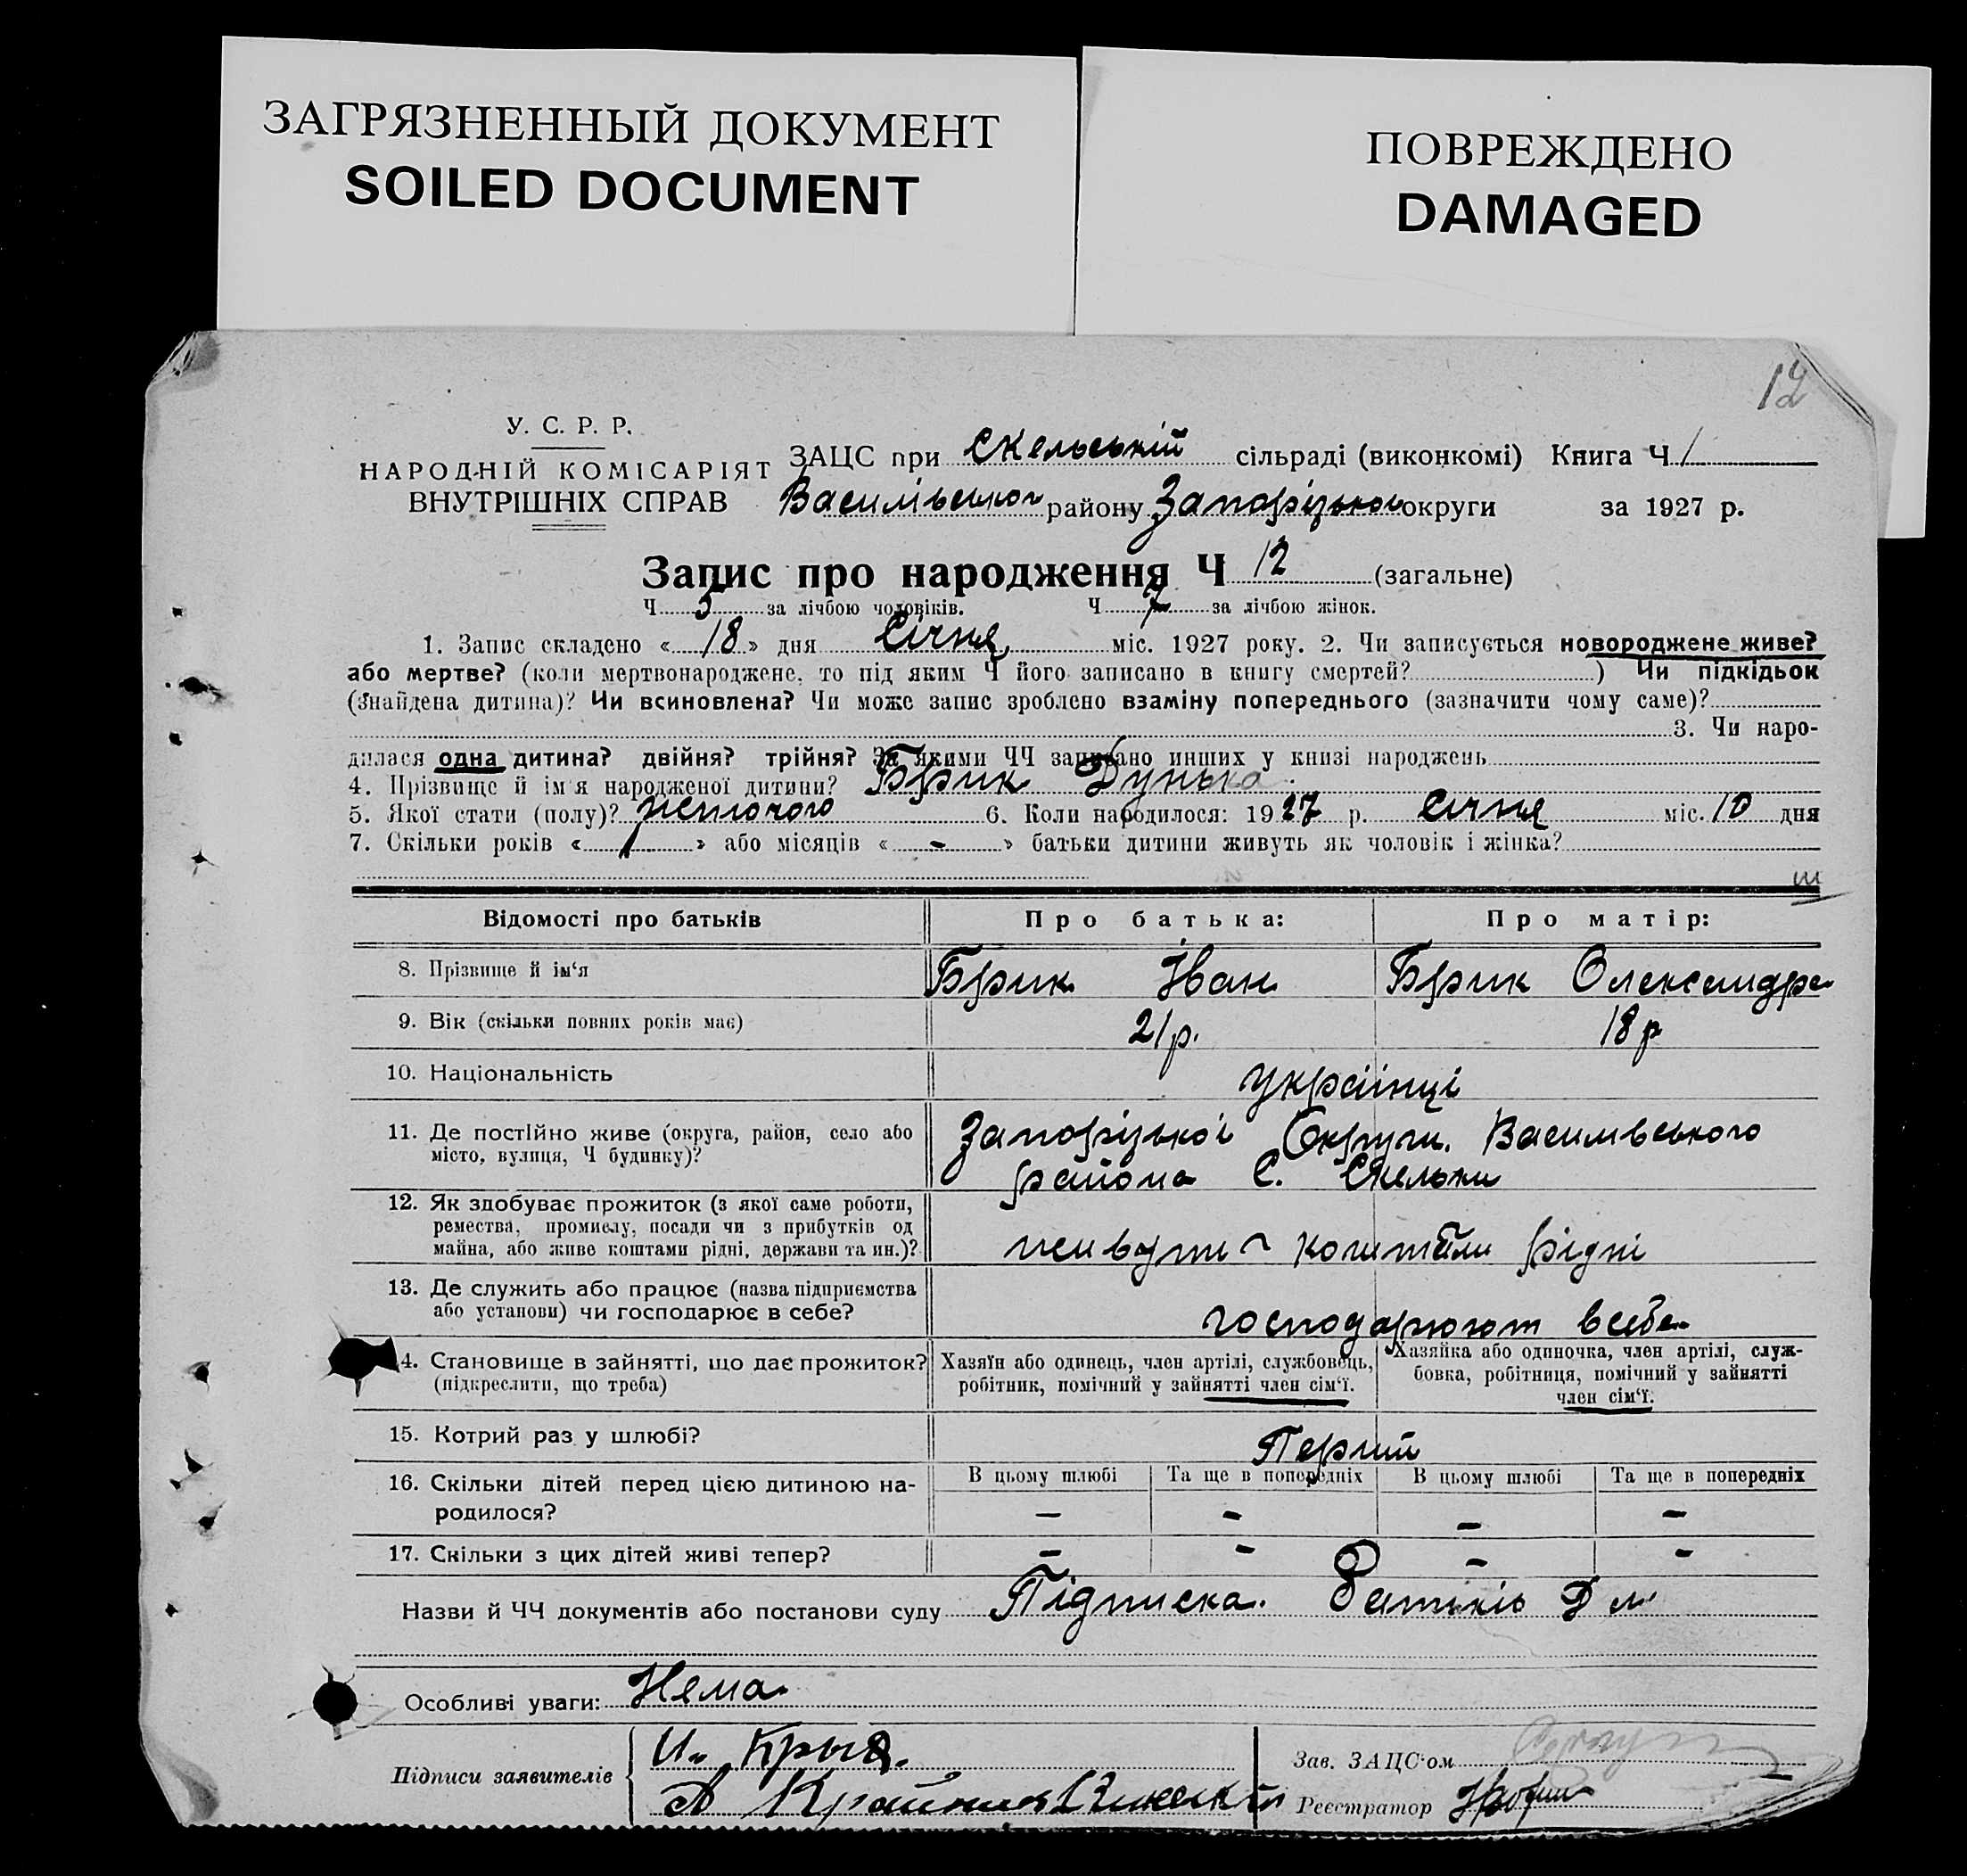 ЗАГРЯЗНЕННЫЙ ДОКУМЕНТ
SOILED DOCUMENT
ПОВРЕЖДЕНО
DAMAGED
12
У. С. Р. Р.
НАРОДНІЙ КОМІСАРІЯТ
ВНУТРІШНІХ СПРАВ
ЗАЦС при Скельській сільраді (виконкомі) Книга Ч 1
Василівського району Запорізької округи за 1927 р.
Запис про народження Ч 12 (загальне)
Ч 5 за лічбою чоловіків. Ч 7 за лічбою жінок.
1. Запис складено « 18 » дня Січня міс. 1927 року. 2. Чи записується новороджене живе?
або мертве? (коли мертвонароджене, то під яким Ч його записано в книгу смертей? ) Чи підкідьок
(знайдена дитина)? Чи всиновлена? Чи може запис зроблено взаміну попереднього (зазначити чому саме)?
3. Чи наро-
дилася одна дитина? двійня? трійня? За якими ЧЧ записано инших у книзі народжень
4. Прізвище й ім'я народженої дитини? Брик Дунька
5. Якої стати (полу)? жіночого 6. Коли народилося: 1927 р. січня міс. 10 дня
7. Скільки років « 1 » або місяців « - » батьки дитини живуть як чоловік і жінка?
Відомості про батьків Про батька: Про матір:
8. Прізвище й ім'я Брик Іван Брик Олександра
9. Вік (скільки повних років має) 21 р. 18 р
10. Національність українці
11. Де постійно живе (округа, район, село або місто, вулиця, Ч будинку)? Запорізької Округи. Василівського
района С. Скельки
12. Як здобуває прожиток (з якої саме роботи,
ремества, промислу, посади чи з прибутків од
майна, або живе коштами рідні, держави та ин.)? живуть коштами рідні
13. Де служить або працює (назва підприємства
або установи) чи господарює в себе? господарюют всебе
14. Становище в зайнятті, що дає прожиток?
(підкреслити, що треба)
Хазяїн або одинець, член артілі, службовець,
робітник, помічний у зайнятті член сім'ї.
Хазяйка або одиночка, член артілі, служ-
бовка, робітниця, помічний у зайнятті
член сім'ї.
15. Котрий раз у шлюбі? Перший
16. Скільки дітей перед цією дитиною на-
родилося?
В цьому шлюбі Та ще в попередніх В цьому шлюбі Та ще в попередніх
— - - -
17. Скільки з цих дітей живі тепер? - - - -
Назви й ЧЧ документів або постанови суду Підписка. Батьків
Особливі уваги: Нема
Підписи заявителів
Зав. ЗАЦС'ом
Реєстратор